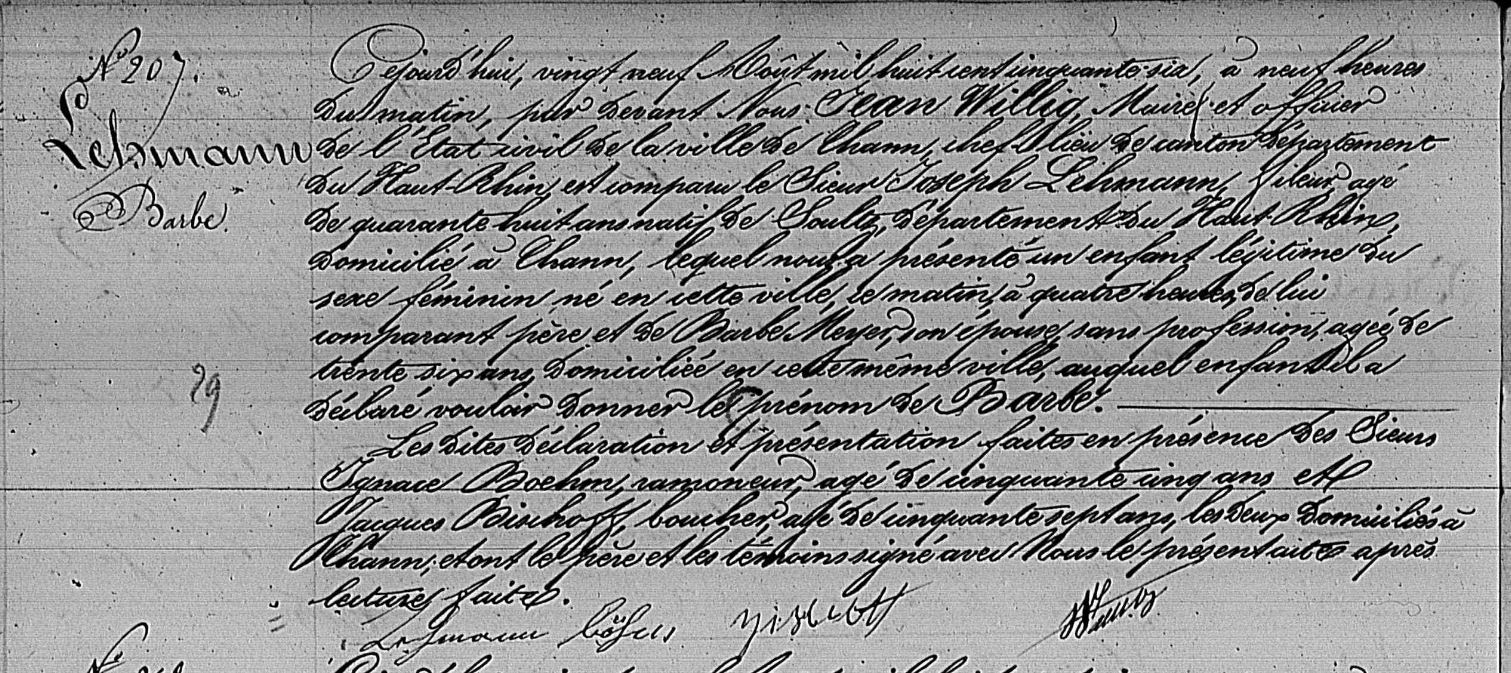 N° 207.
Lehmann
Barbe.
29
Cejourd'hui, vingt neuf Août mil huit cent cinquante six, à neuf heures
du matin, par devant Nous Jean Willig, Maire et officier
de l'Etat civil de la ville de Thann, chef lieu de canton Département
du Haut-Rhin, est comparu le Sieur Joseph Lehmann, fileur, agé
de quarante huit ans natif de Soultz, Département du Haut-Rhin,
domicilié à Thann, lequel nous a présenté un enfant légitime du
sexe féminin né en cette ville, le matin, à quatre heures, de lui
comparant père et de Barbe Meyer, son épouse, sans profession, agée de
trente six ans, domiciliée en cette même ville, auquel enfant il a
déclaré vouloir donner le prénom de Barbe.
Les dites déclaration et présentation faites en présence des Sieurs
Ignace Boehm, ramoneur, agé de cinquante cinq ans et
Jacques Bischoff, boucher, agé de cinquante sept ans, les deux domiciliés à
Thann, et ont le père et les témoins signé avec Nous le présent acte après
lecture faite.
Lehmann